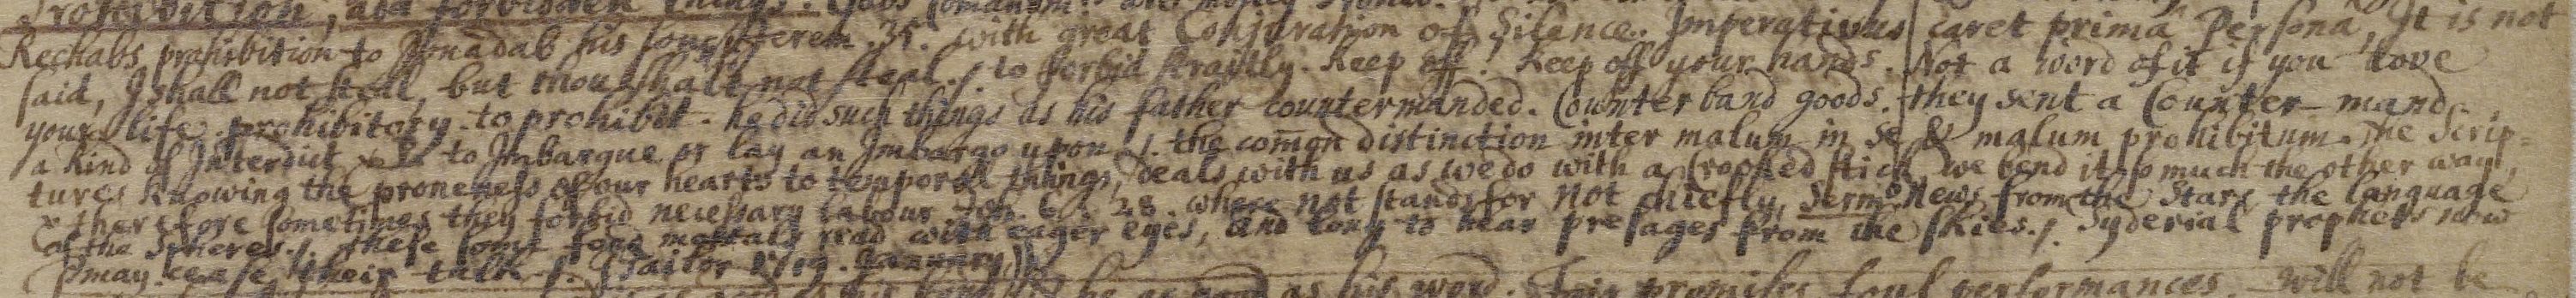 Prohibition, and forbidden things.
Rechabs prohibition to Jonadab his son Jerem. 35. with great Conjuration of Silence. Imperativus caret prima Persona, It is not
said, I shall not steal, but thou shalt not steal./ to forbid straitly. Keep off! Keep off your hands. Not a word of it if you love
your life. prohibitory. to prohibit. he did such things as his father countermanded. Counterband goods. they sent a Counter-mand
a kind of Interdict to Imbargue or lay an Imbargo upon /. the com̄on distinction inter malum in se & malum prohibitum. The Scrip=
tures knowing the proneness of our hearts to temporal things, deals with us as we do with a Crooked stick, we bend it so much the other way,
& therefore sometimes they forbid necessary labour Joh. 6. 28. where not stands for not chiefly, Serm. News from the Stars the language
of the Spheres./. these some fond mortals read with eager eyes, and long to hear presages from the skies./. Syderial prophets now
may cease their talk /. (Sailor 1719. January)
as his word. Fair promises foul performances. will not be